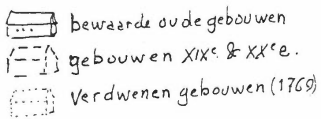 bewaarde oude gebouwen
gebouwen XIXe. & XXe e.
verdwenen gebouwen (1769)